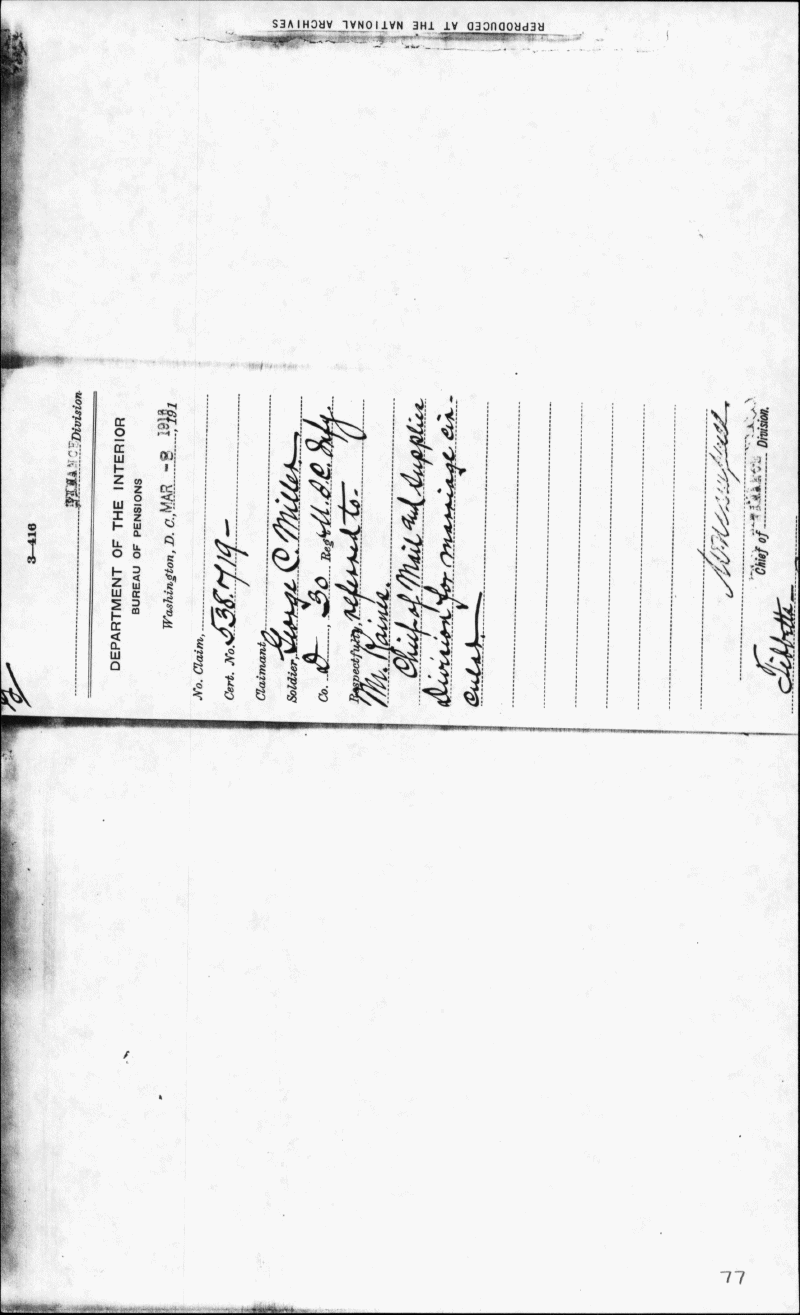 REPRODUCED AT THE NATIONAL ARCHIVES
3—416
FINANCE Division
DEPARTMENT OF THE INTERIOR
BUREAU OF PENSIONS
Washington, D. C., MAR -8 1918 191
No. Claim,
Cert. No. 538.719 —
Claimant
Soldier, George C. Miller
Co. D, 30 Reg't U.S.C. Infy
Respectfully, referred to-
Mr.
Chief of Mail and Supplies
Division for marriage cir-
cular
Chief of FINANCE Division.
Tibbetts
77